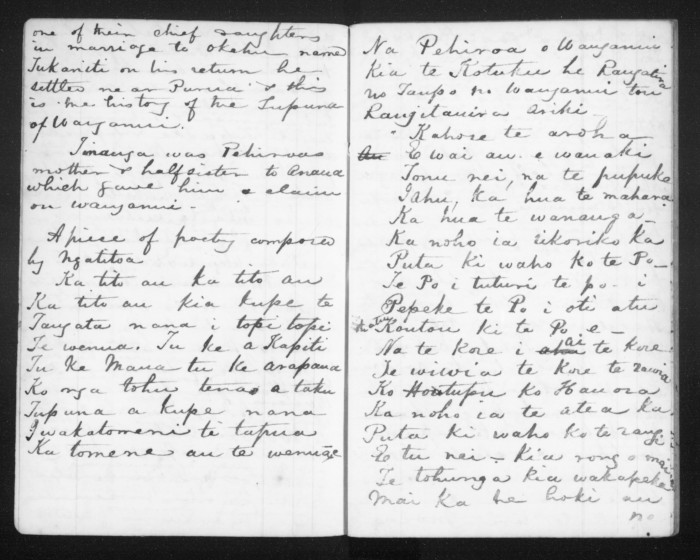 one of their chief daughters
in marriage to Okehu named
Tukaniti on his return he
settles near Purua & this
is the history of the Tupuna
of Wanganui.
Tinanga was Pehiroas
mother & half sister to Anaua
which gave him a claim
on Wanganui -
A piece of poetry composed
by Ngatitoa
Ka tito au ka tito au
Ka tito au kia kupe te
Tangata nana i topi topi
Te wenua. Tu ke a Kapiti
Tu Ke Mana tu ke arapaua
Ko nga tohu tenao a taku
Tupuna a kupe nana
I wakatomeni te tapua
Ka tomene au te wenua e
Na Pehiroa o Wanganui
Kia te Kotuku he Rangatira
no Taupo no Wanganui tou
Rangitauira Ariki -
" Kahore te aroha
E wai au. e wanaki
Tonu nei, na te pupuke
I ahu, Ka hua te mahara
Ka hua te wananga -
Ka noho ia rikoriko ka
Puta ki waho ko te Po -
Te Po i tuturi te po. i
Pepeke te Po i oti atu
Koutou ki te Po e -
Na te kore i ai te Kore
Te wiwia te Kore te rawea
Ko Hotupu ko Hauora
Ka noho ia te atea ka
Puta ki waho ko te rangi
E tu nei - Kia rongo mai
Te tohunga kia wakapeke
Mai Ka he hoki au
no